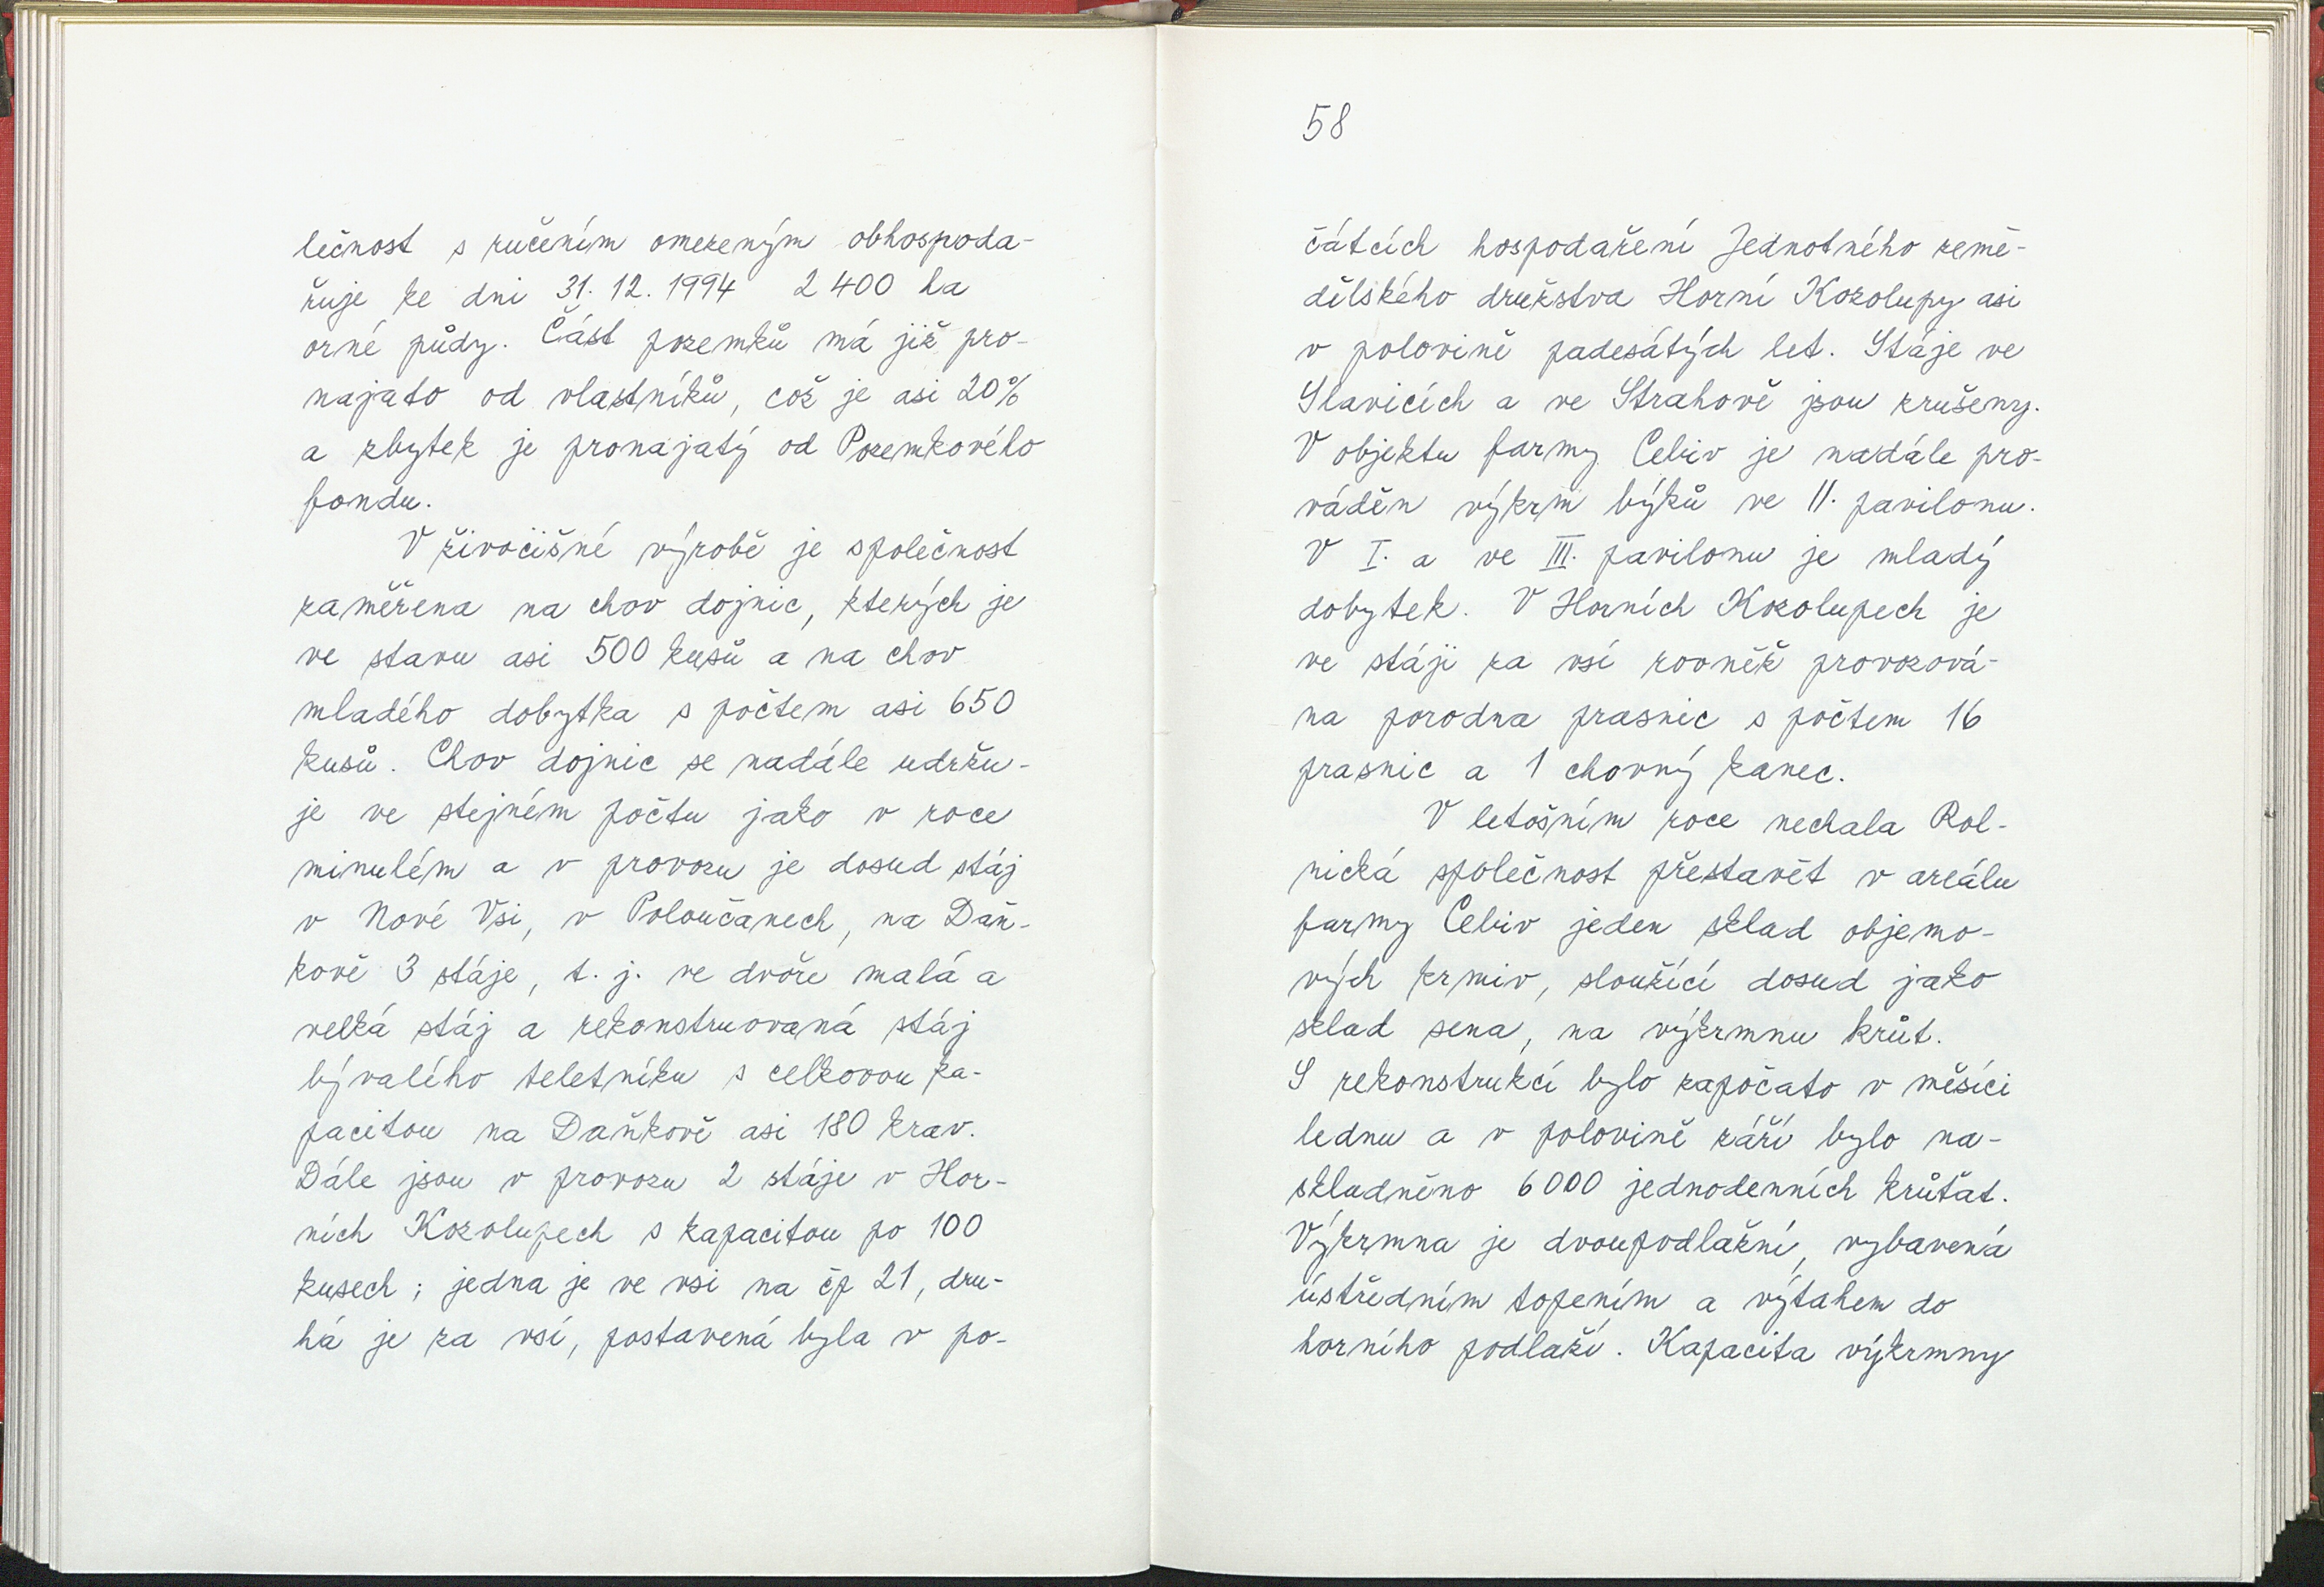 lečnost s ručením omezeným obhospoda-
řuje ke dni 31. 12. 1994 2 400 ha
orné půdy. Část pozemků má již pro-
najato od vlastníků, což je asi 20%
a zbytek je pronajatý od Pozemkového
fondu.
V živočišné výrobě je společnost
zaměřena na chov dojnic, kterých je
ve stavu asi 500 kusů a na chov
mladého dobytka s počtem asi 650
kusů. Chov dojnic se nadále udržu-
je ve stejném počtu jako v roce
minulém a v provozu je dosud stáj
v Nové Vsi, v Poloučanech, na Daň-
kově 3 stáje, t. j. ve dvoře malá a
velká stáj a rekonstruovaná stáj
bývalého teletníku s celkovou ka-
pacitou na Daňkově asi 180 krav.
Dále jsou v provozu 2 stáje v Hor-
ních Kozolupech s kapacitou po 100
kusech; jedna je ve vsi na čp 21, dru-
há je za vsí, postavená byla v po-
58
čátcích hospodaření Jednotného země-
dělského družstva Horní Kozolupy asi
v polovině padesátých let. Stáje ve
Slavicích a ve Strahově jsou zrušeny.
V objektu farmy Cebiv je nadále pro-
váděn výkrm býků ve II. pavilonu.
V I. a ve III. pavilonu je mladý
dobytek. V Horních Kozolupech je
ve stáji za vsí rovněž provozová-
na porodna prasnic s počtem 16
prasnic a 1 chovný kanec.
V letošním roce nechala Rol-
nická společnost přestavět v areálu
farmy Cebiv jeden sklad objemo-
vých krmiv, sloužící dosud jako
sklad sena, na výkrmnu krůt.
S rekonstrukcí bylo započato v měsíci
lednu a v polovině září bylo na-
skladněno 6000 jednodenních krůťat.
Výkrmna je dvoupodlažní, vybavená
ústředním topením a výtahem do
horního podlaží. Kapacita výkrmny